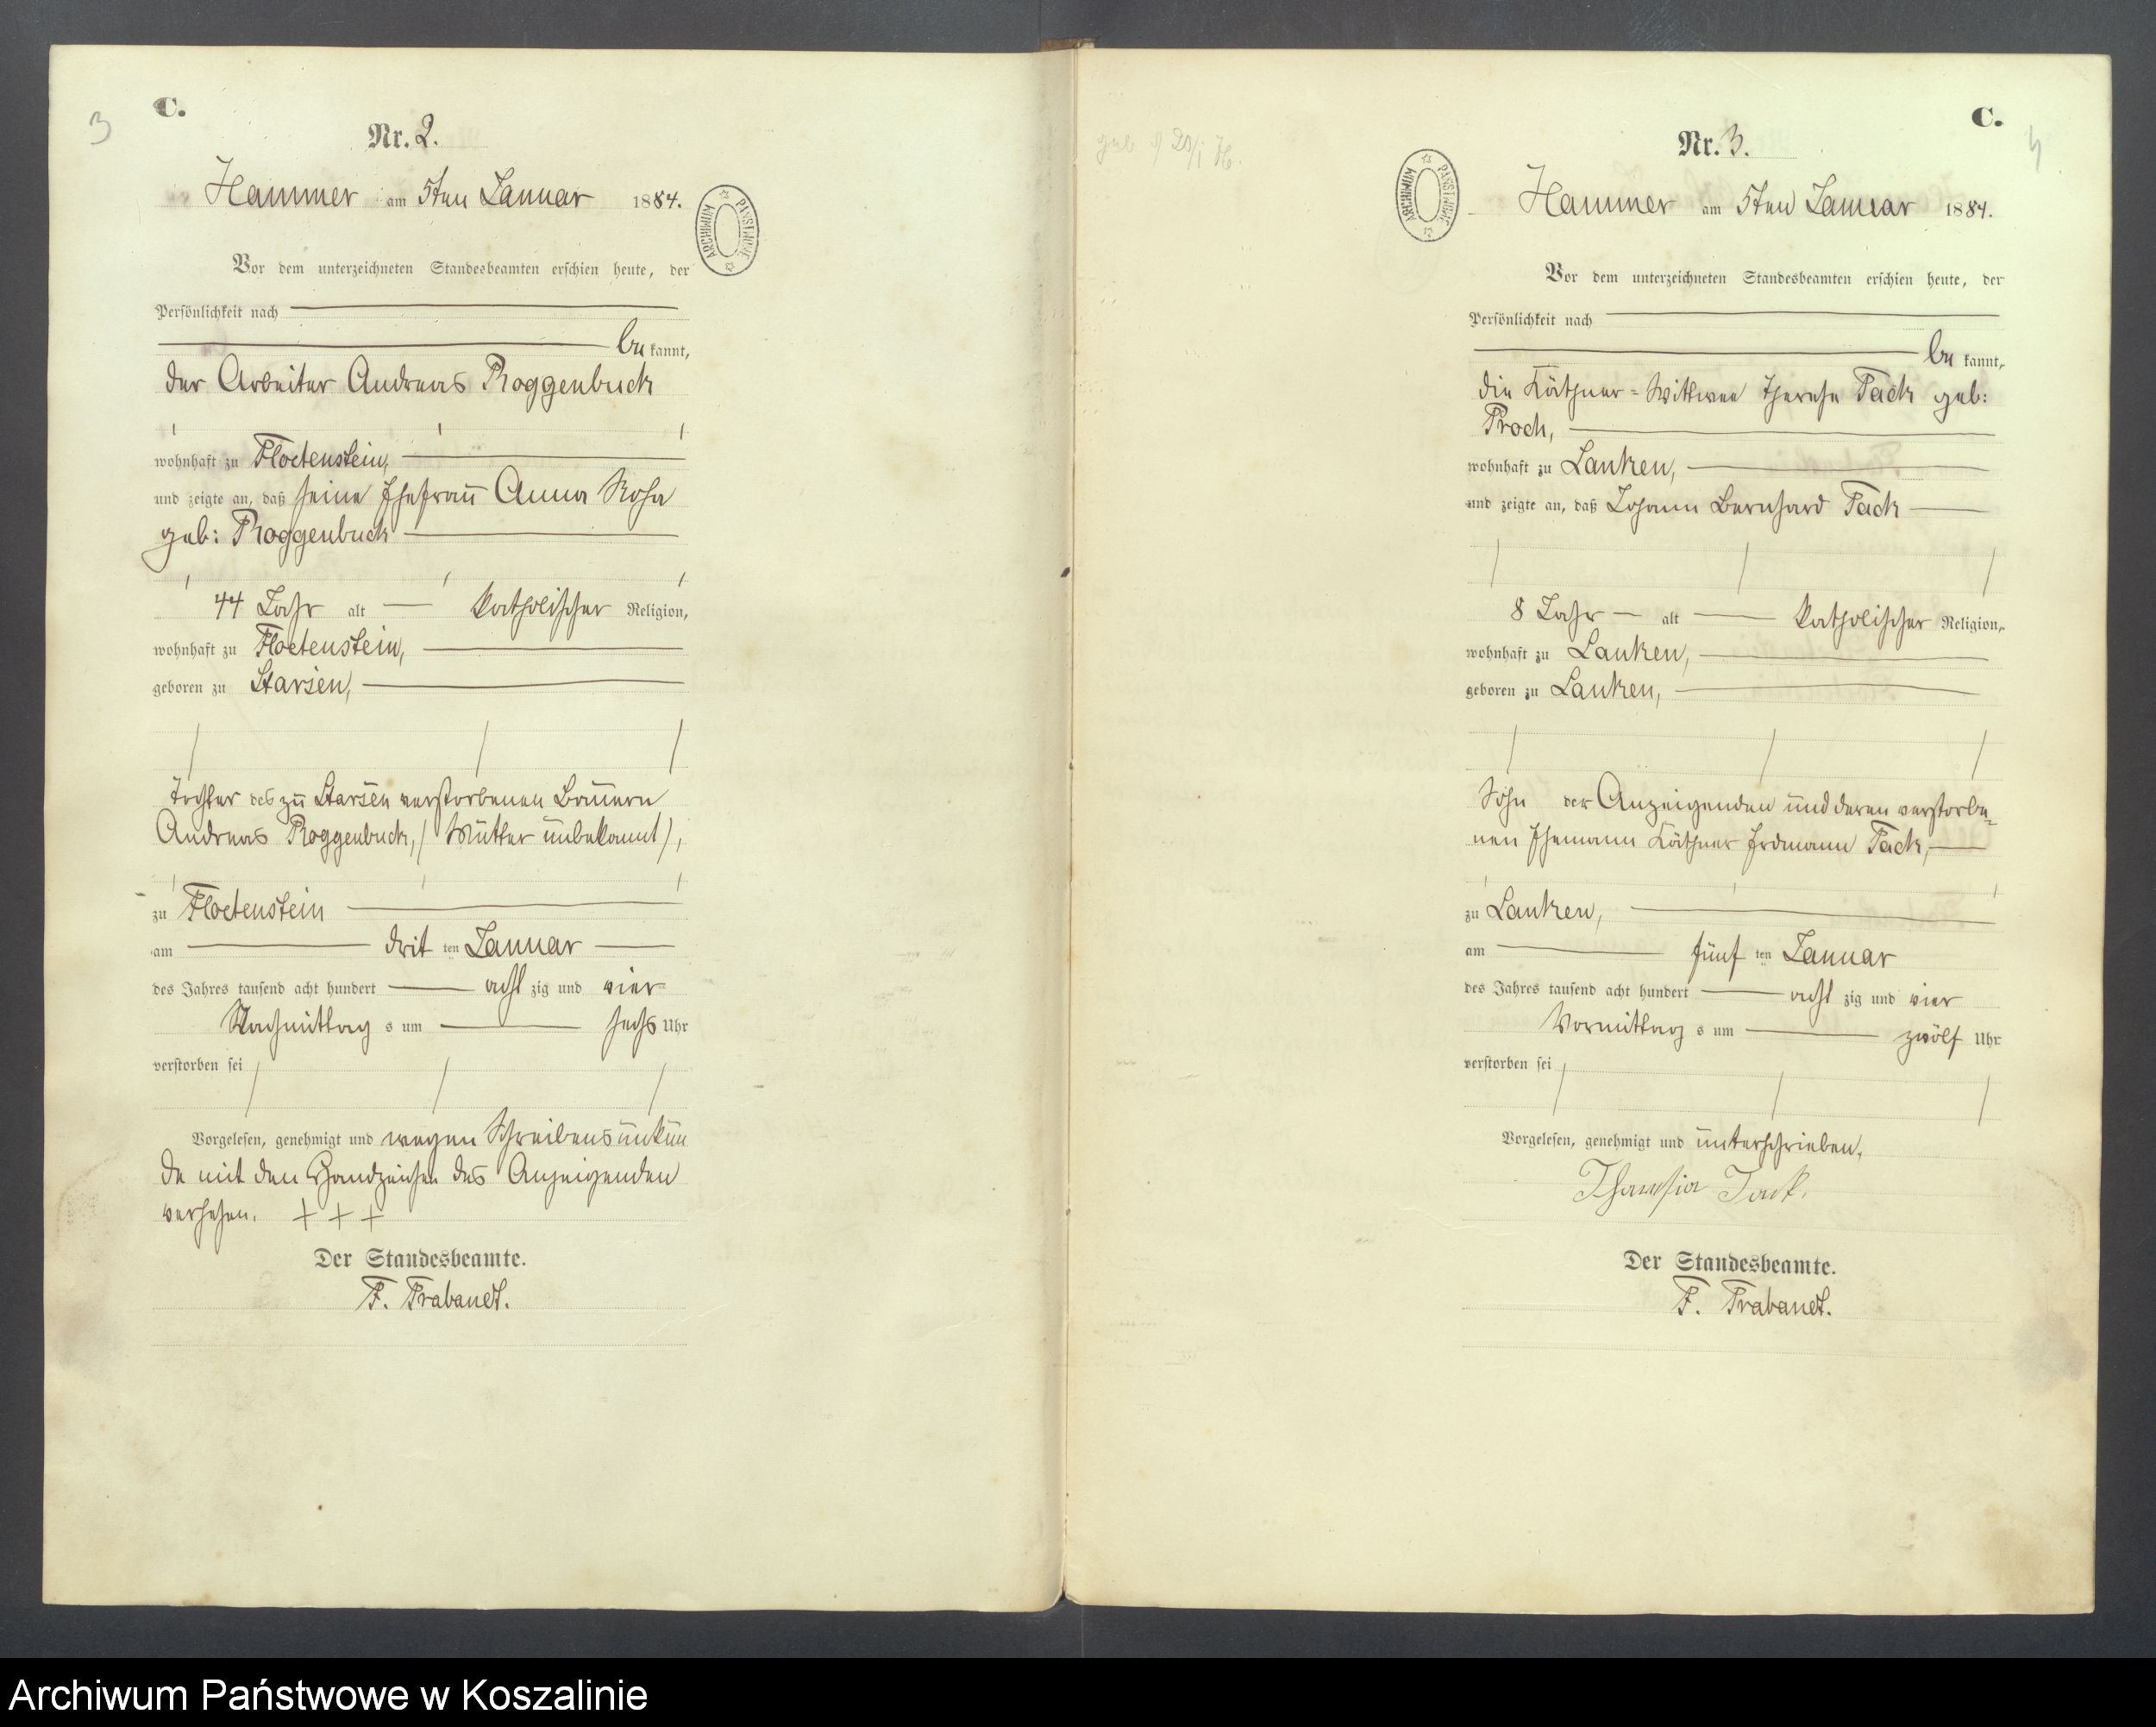 3
C.
Nr. 2.
Hammer am 5ten Januar 1884.
ARCHIWUM PAŃSTWOWE
Vor dem unterzeichneten Standesbeamten erschien heute, der
Persönlichkeit nach
be kannt,
der Arbeiter Andreas Roggenbuck
wohnhaft zu Floetenstein,
und zeigte an, daß seine Ehefrau Anna Rosa
geb: Roggenbuck
44 Jahr alt katholischer Religion,
wohnhaft zu Floetenstein,
geboren zu Starsen,
Tochter des zu Starsen verstorbenen Bauern
Andreas Roggenbuck, (Mutter unbekannt),
zu Floetenstein
am drit ten Januar
des Jahres tausend acht hundert acht zig und vier
Nachmittag s um sechs Uhr
verstorben sei
Vorgelesen, genehmigt und wegen Schreibensunkun
de mit den Handzeichen des Anzeigenden
versehen. + + +
Der Standesbeamte.
F. Trabandt.
C.
4
Nr. 3.
Hammer am 5ten Januar 1884.
ARCHIWUM PAŃSTWOWE
Vor dem unterzeichneten Standesbeamten erschien heute, der
Persönlichkeit nach
be kannt,
die Käthner-Wittwe Therese Tack geb:
Proch,
wohnhaft zu Lanken,
und zeigte an, daß Johann Bernhard Tack
8 Jahr alt katholischer Religion,
wohnhaft zu Lanken,
geboren zu Lanken,
Sohn der Anzeigenden und deren verstorbe-
nen Ehemann Käthner Erdmann Tack,
zu Lanken,
am fünf ten Januar
des Jahres tausend acht hundert acht zig und vier
Vormittag s um zwölf Uhr
verstorben sei
Vorgelesen, genehmigt und unterschrieben.
Tack.
Der Standesbeamte.
F. Trabandt.
Archiwum Państwowe w Koszalinie